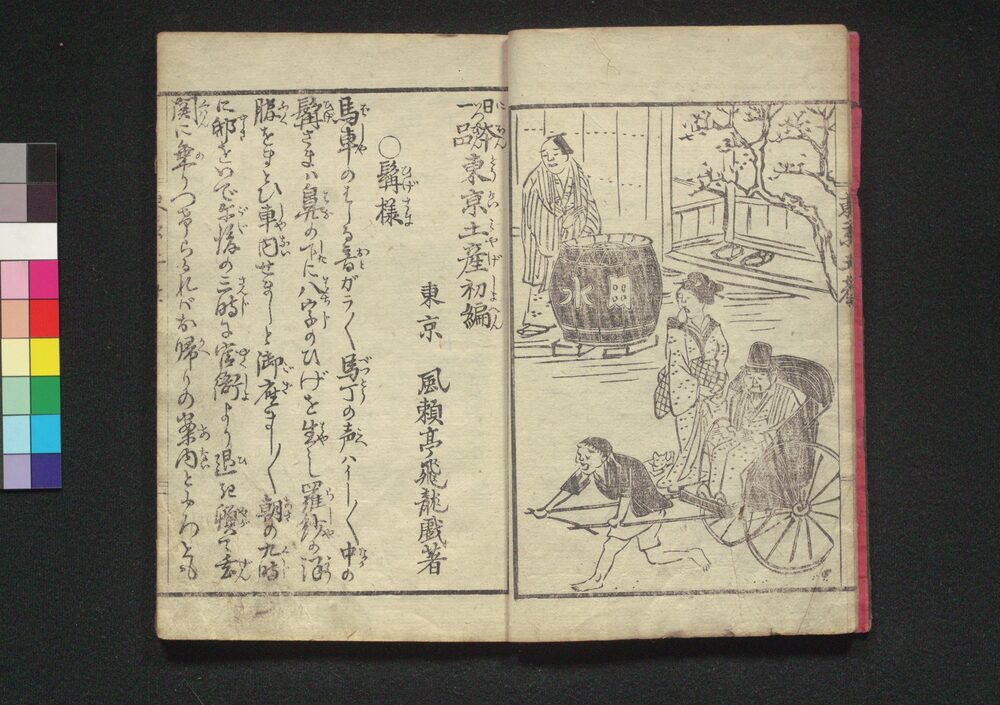 用水
日本一品 東京土産初編
東京 風頼亭飛龍戯著
○髯様
馬車のはしる音ガラ〱馬丁の声ハイ〱中の
髯さまハ鼻の下に八字のひげを生し羅紗の洋
服をまとひ車内せましと御座まし〱朝の九時
に邸をいで午後の三時に官衙より退き て玄
関に乗りつけらるれバお帰りの案内ともろとも